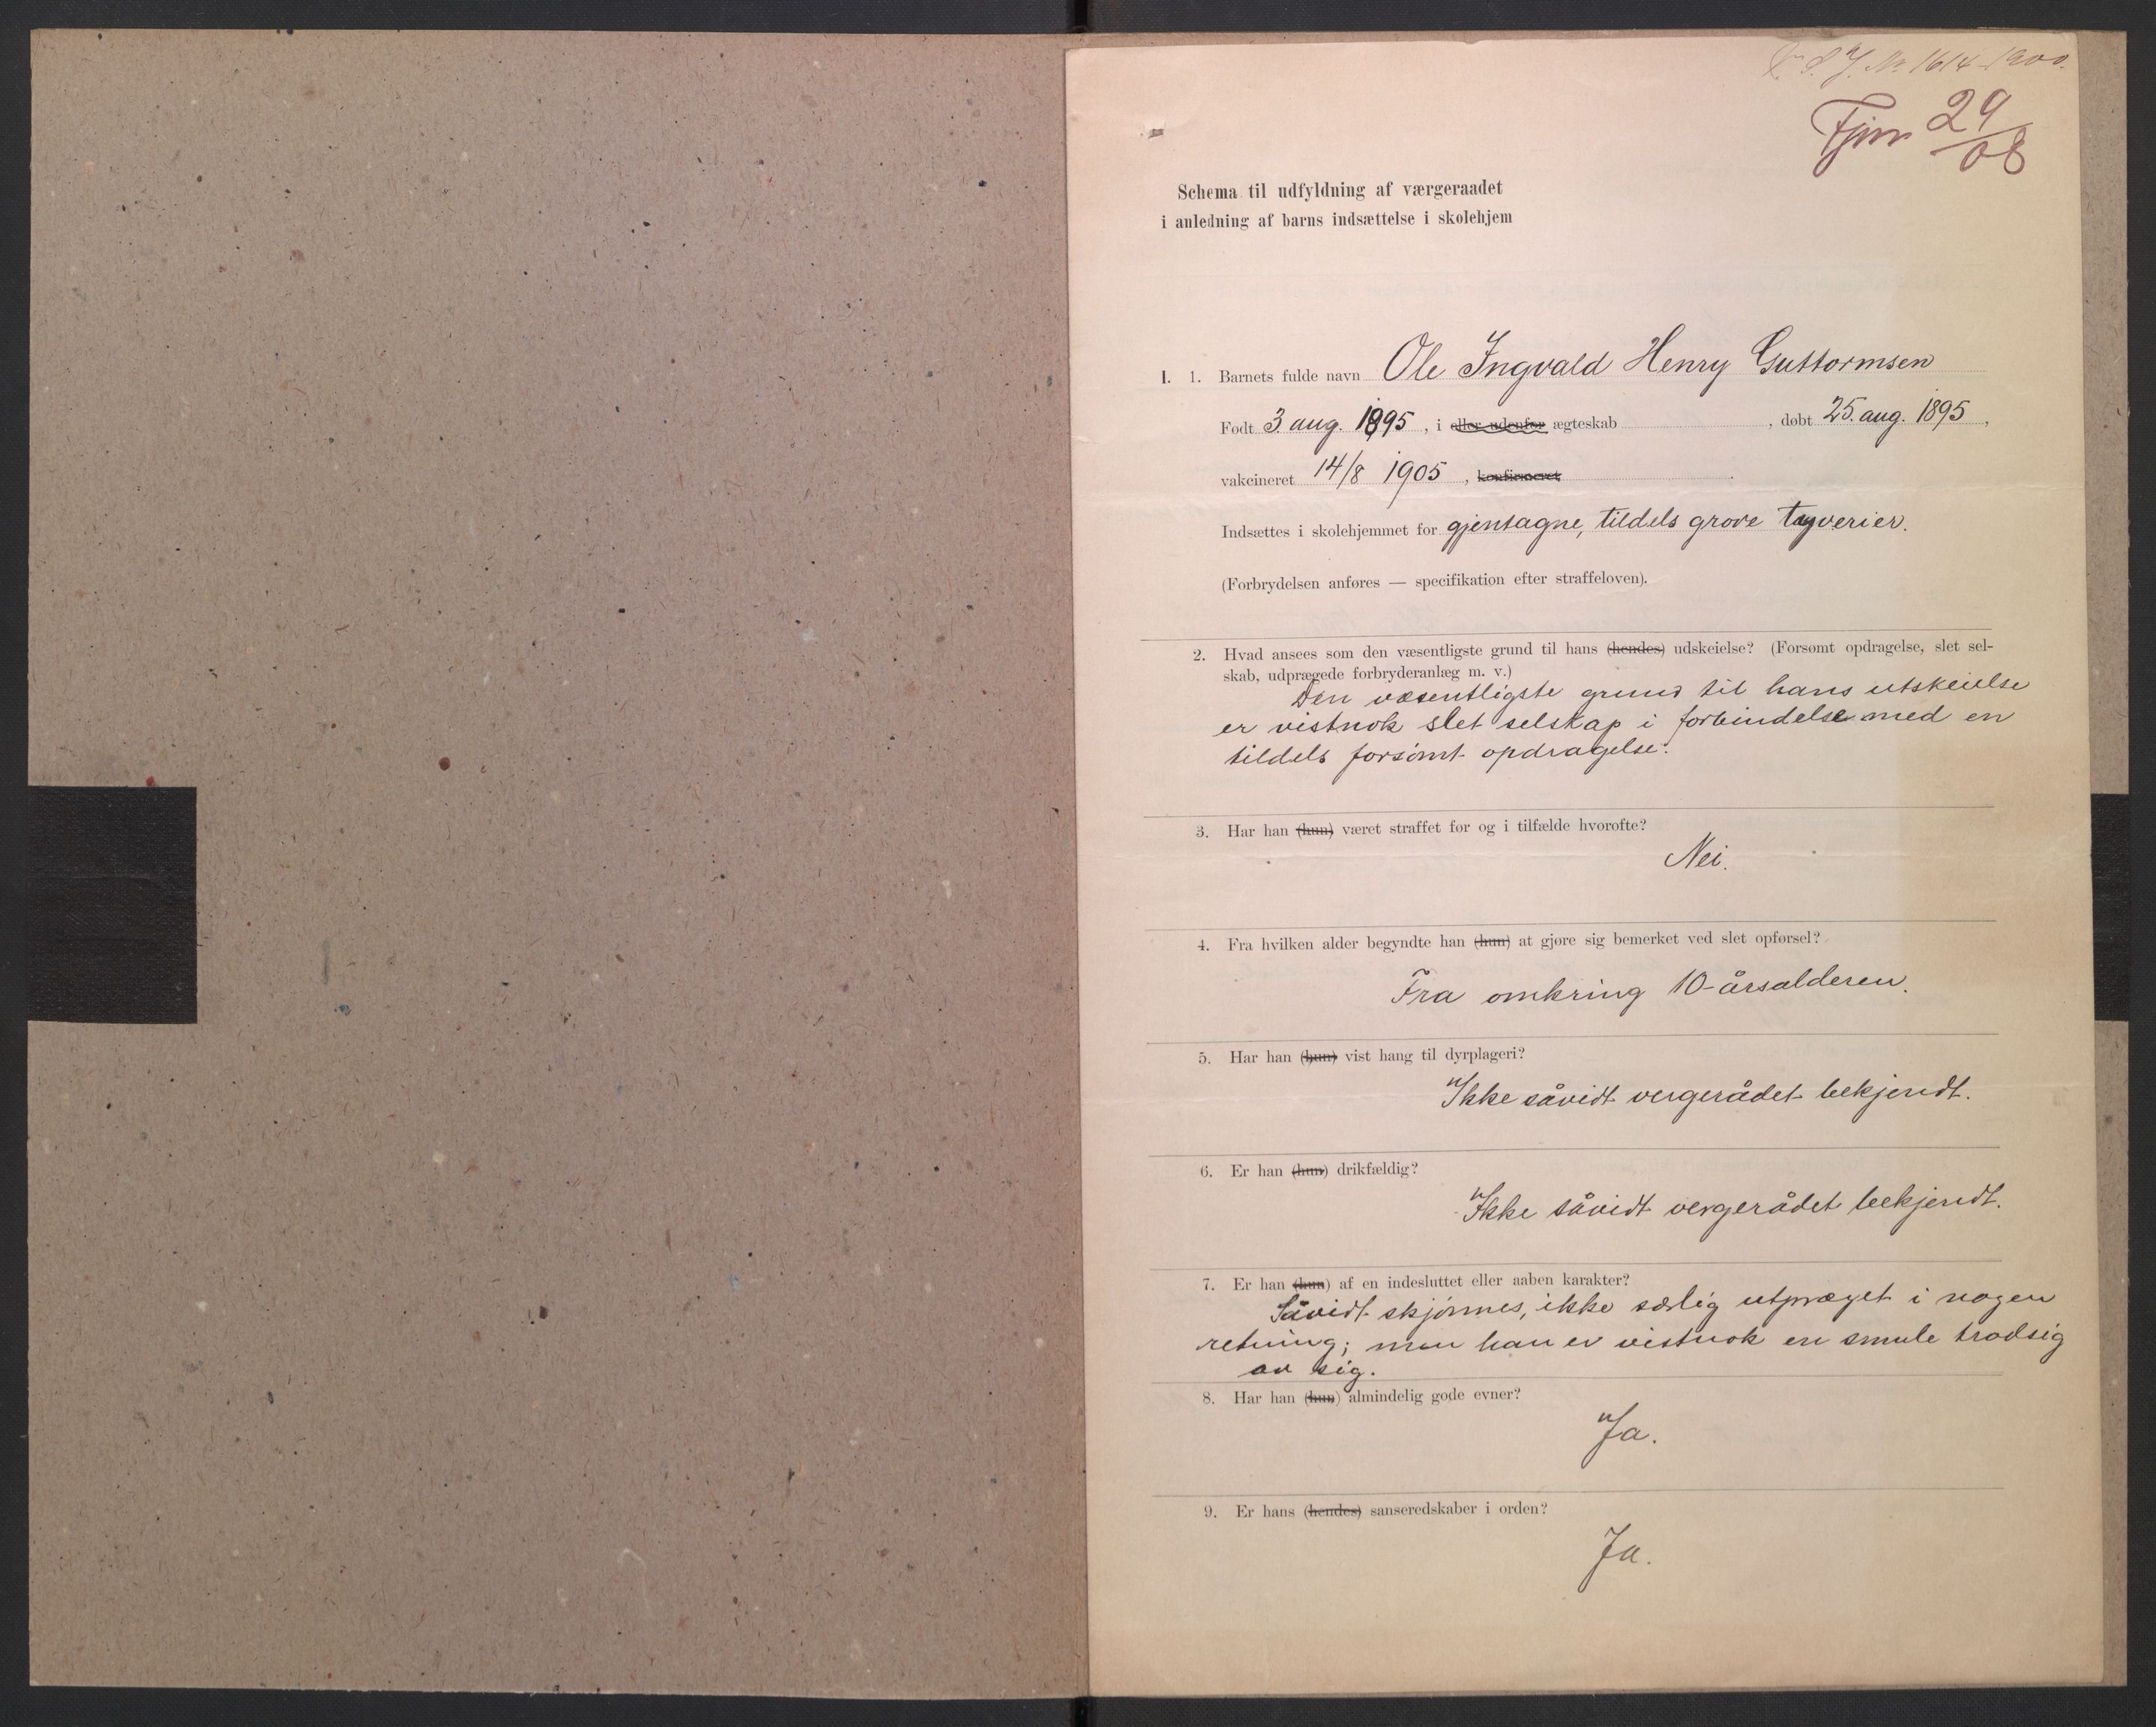 Nr. 1614-1900.
Fjm 29/08
Schema til udfyldning af værgeraadet
i anledning af barns indsættelse i skolehjem
I. 1. Barnets fulde navn Ole Ingvald Henry Guttormsen
Født 3. aug. 1895, i eller udenfor ægteskab , døbt 25. aug. 1895,
vakcineret 14/8 1905, konfirmeret .
Indsættes i skolehjemmet for gjentagne, tildels grove tyverier.
(Forbrydelsen anføres — specifikation efter straffeloven).
2. Hvad ansees som den væsentligste grund til hans (hendes) udskeielse? (Forsømt opdragelse, slet sel-
skab, udprægede forbryderanlæg m. v.)
Den væsentligste grund til hans utskeielse
er vistnok slet selskap i forbindelse med en
tildels forsømt opdragelse.
3. Har han (hun) været straffet før og i tilfælde hvorofte?
Nei.
4. Fra hvilken alder begyndte han (hun) at gjøre sig bemerket ved slet opførsel?
Fra omkring 10-årsalderen.
5. Har han (hun) vist hang til dyrplageri?
Ikke såvidt vergerådet bekjendt.
6. Er han (hun) drikfældig?
Ikke såvidt vergerådet bekjendt.
7. Er han (hun) af en indesluttet eller aaben karakter?
Såvidt skjønnes, ikke særlig utpræget i nogen
retning; men han er vistnok en smule trodsig
av sig.
8. Har han (hun) almindelig gode evner?
Ja.
9. Er hans (hendes) sanseredskaber i orden?
Ja.